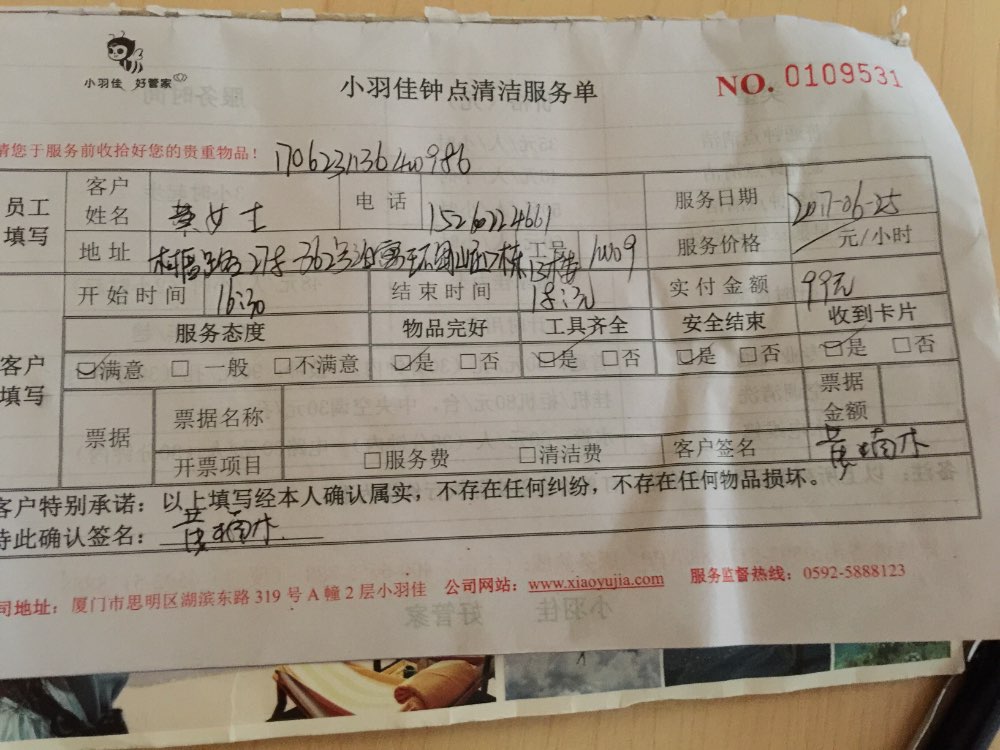 小羽佳 好管家
小羽佳钟点清洁服务单
NO. 0109531
请您于服务前收拾好您的贵重物品！
员工填写
客户姓名 女士 电话 15260224661 服务日期 2017-06-25
地址 工号 服务价格 元/小时
开始时间 16:30 结束时间 实付金额 99元
服务态度 物品完好 工具齐全 安全结束 收到卡片
客户填写
☑满意 □一般 □不满意 ☑是 □否 ☑是 □否 ☑是 □否 ☑是 □否
票据 票据名称 票据金额
开票项目 □服务费 □清洁费 客户签名
客户特别承诺：以上填写经本人确认属实，不存在任何纠纷，不存在任何物品损坏。
特此确认签名：
司地址：厦门市思明区湖滨东路 319 号 A 幢 2 层小羽佳 公司网站：www.xiaoyujia.com 服务监督热线：0592-5888123